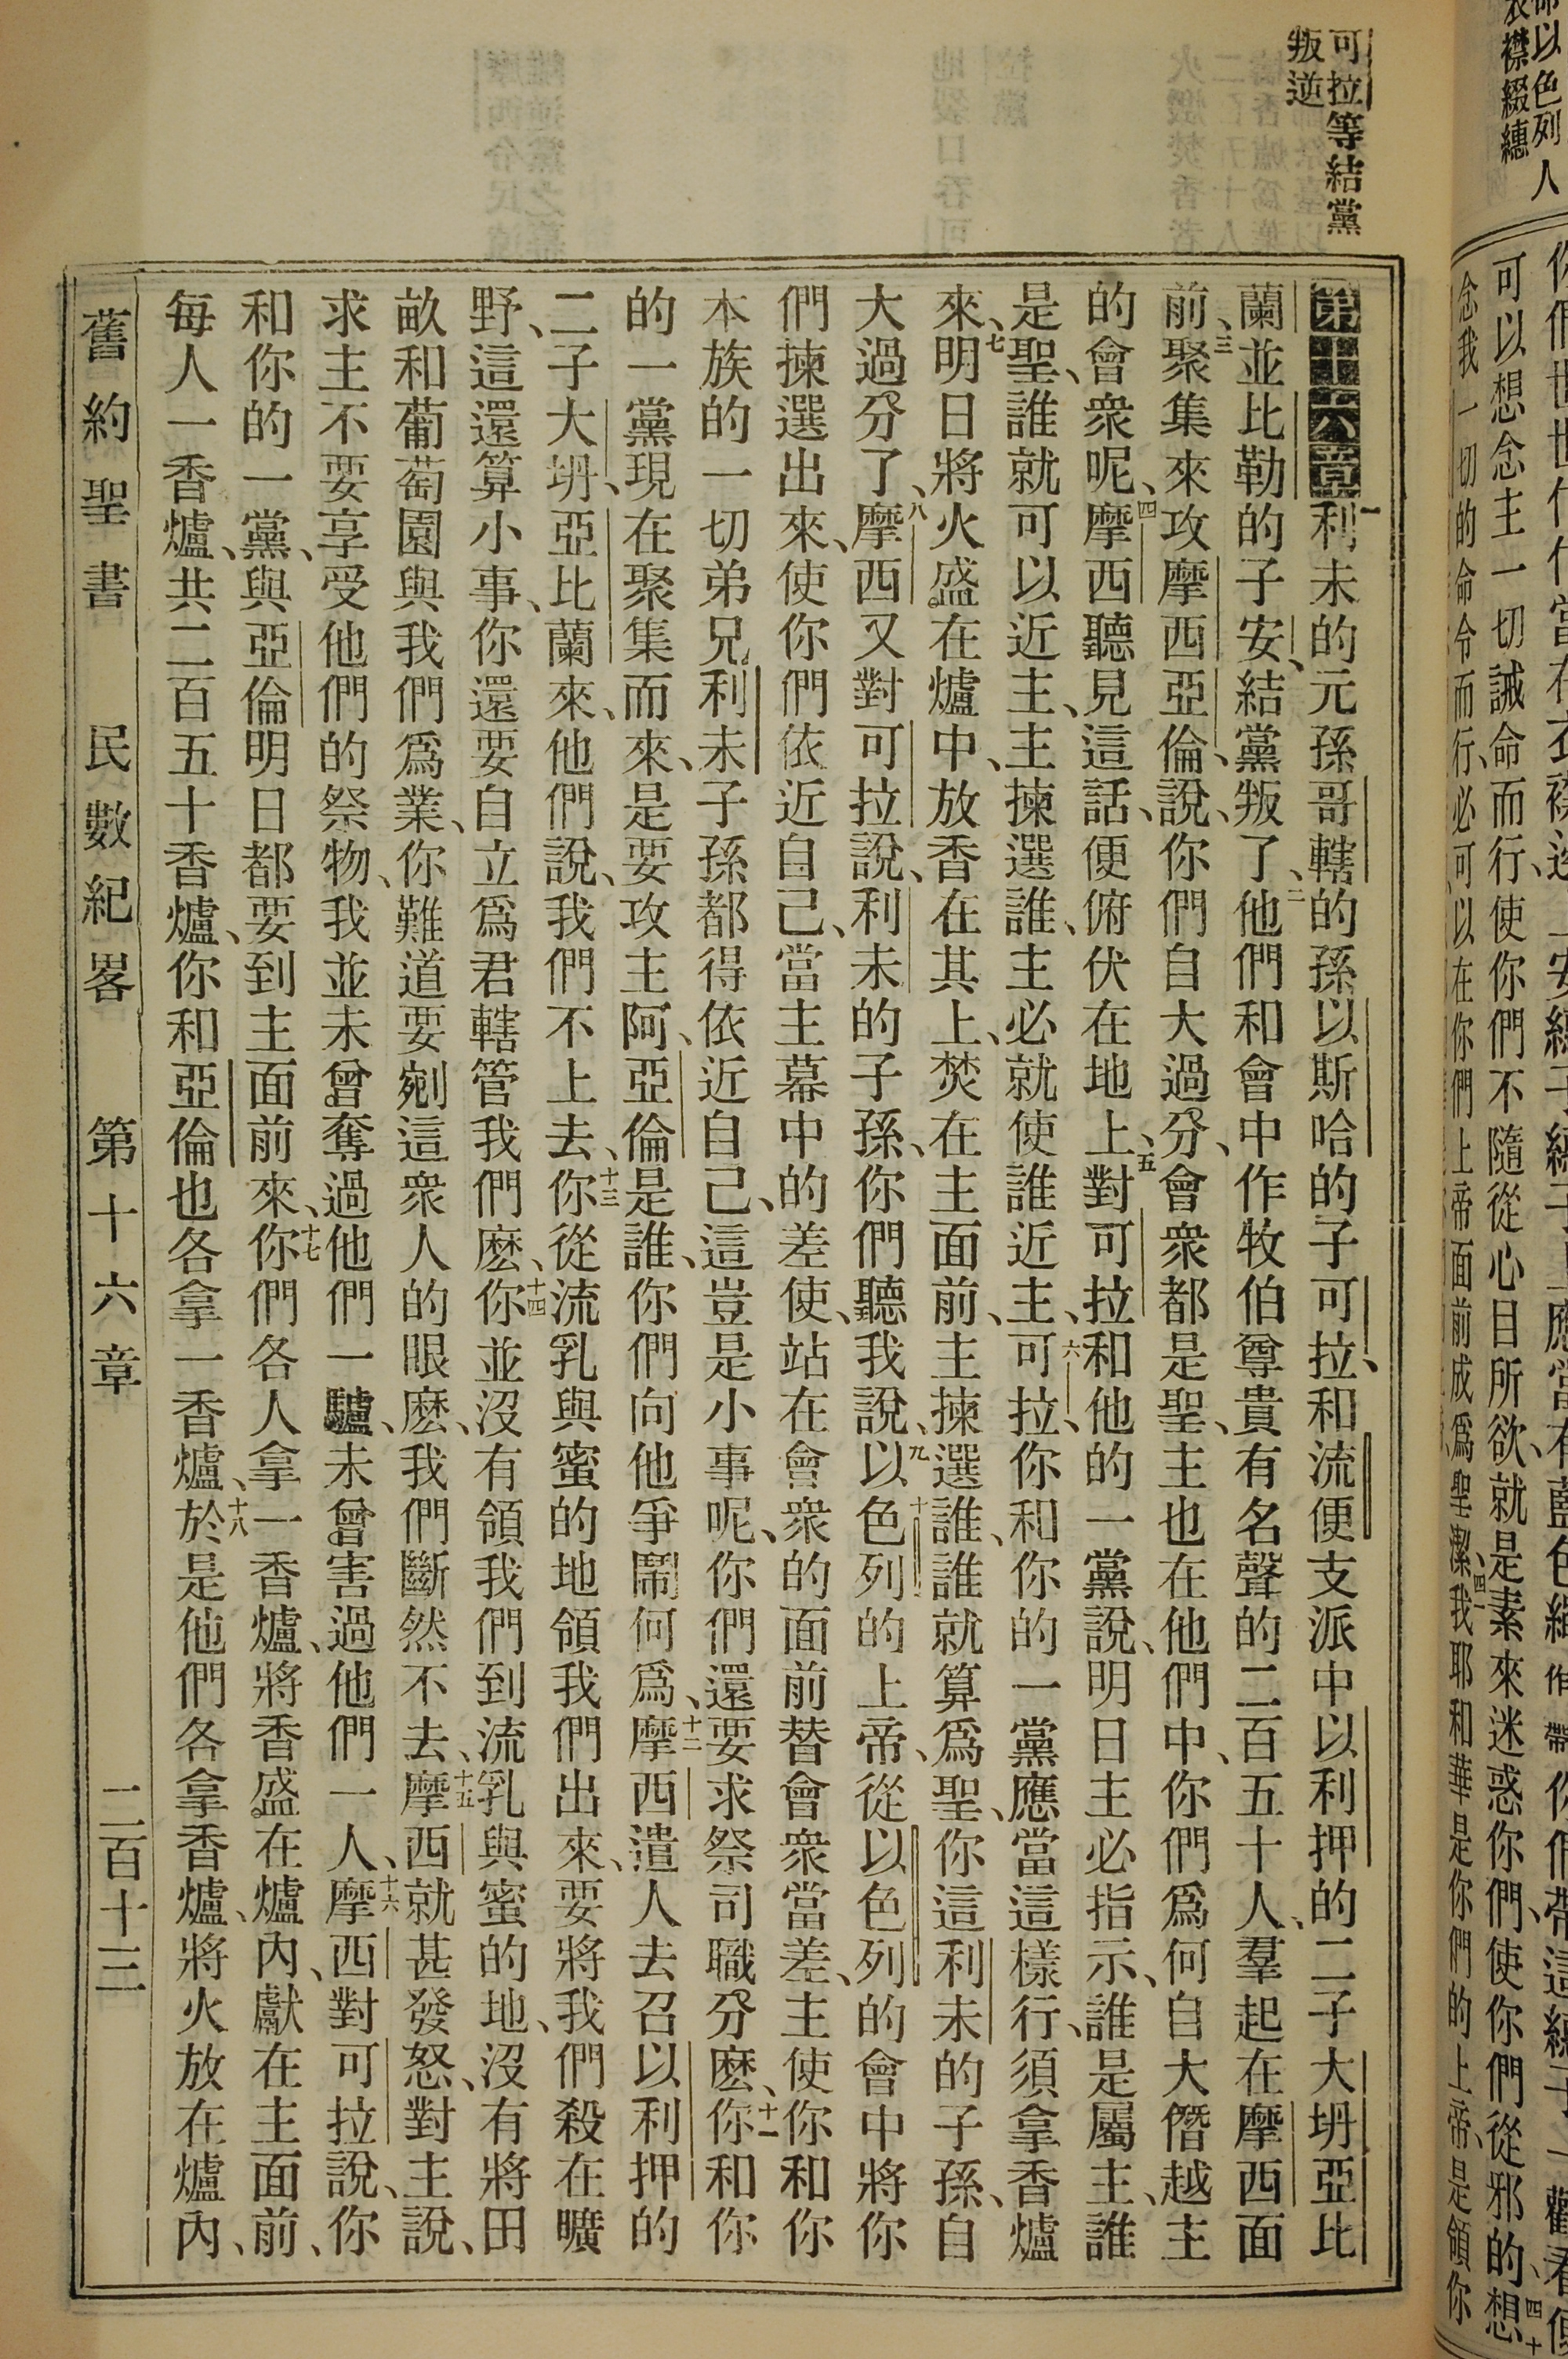 命以色列人
衣襟綴繐
可以想念主一切誡命而行、使你們不隨從心目所欲、就是素來迷惑你們、使你們從邪的、四十想
念我一切的命令而行、必可以在你們上帝面前成爲聖潔、四一我耶和華是你們的上帝、是領你
可拉等結黨
叛逆
第十六章一利未的元孫哥轄的孫以斯哈的子可拉、和流便支派中以利押的二子大坍亞比
蘭並比勒的子安、結黨叛了、二他們和會中作牧伯尊貴有名聲的二百五十人、羣起在摩西面
前、三聚集來攻摩西亞倫、說、你們自大過分、會衆都是聖、主也在他們中、你們爲何自大僭越主
的會衆呢、四摩西聽見這話、便俯伏在地上、五對可拉和他的一黨說、明日主必指示、誰是屬主、誰
是聖、誰就可以近主、主揀選誰、主必就使誰近主、六可拉、你和你的一黨應當這樣行、須拿香爐
來、七明日將火盛在爐中、放香在其上、焚在主面前、主揀選誰、誰就算爲聖、你這利未的子孫、自
大過分了、八摩西又對可拉說、利未的子孫、你們聽我說、九十以色列的上帝、從以色列的會中將你
們揀選出來、使你們依近自己、當主幕中的差使、站在會衆的面前替會衆當差、主使你和你
本族的一切弟兄利未子孫都得依近自己、這豈是小事呢、你們還要求祭司職分麽、十一你和你
的一黨現在聚集而來、是要攻主阿、亞倫是誰、你們向他爭鬧何爲、十二摩西遣人去召以利押的
二子大坍、亞比蘭來、他們說、我們不上去、十三你從流乳與蜜的地領我們出來、要將我們殺在曠
野、這還算小事、你還要自立爲君轄管我們麽、十四你並沒有領我們到流乳與蜜的地、沒有將田
畝和葡萄園與我們爲業、你難道要剜這衆人的眼麽、我們斷然不去、十五摩西就甚發怒、對主說、
求主不要享受他們的祭物、我並未曾奪過他們一驢、未曾害過他們一人、十六摩西對可拉說、你
和你的一黨、與亞倫明日都要到主面前來、十七你們各人拿一香爐、將香盛在爐內、獻在主面前、
每人一香爐、共二百五十香爐、你和亞倫也各拿一香爐、十八於是他們各拿香爐、將火放在爐內、
舊約聖書 民數紀畧 第十六章 二百十三